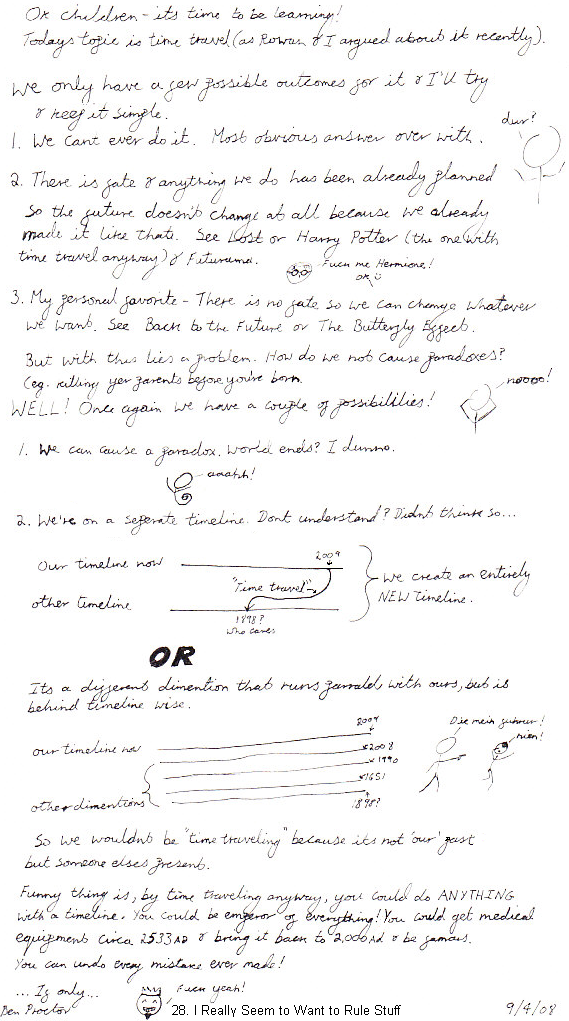 Ok children - its time to be learning!
Todays topic is time travel (as Rowan & I argued about it recently).
We only have a few possible outcomes for it & I'll try
& keep it simple.
dur?
1. We cant ever do it. Most obvious answer over with.
2. There is fate & anything we do has been already planned
so the future doesn't change at all because we already
made it like that. See Lost or Harry Potter (the one with
time travel anyway) & Futurama.
Fuck me Hermione!
OK
3. My personal favorite - There is no fate so we can change whatever
we want. See Back to the Future or The Butterfly Effect.
But with this lies a problem. How do we not cause paradoxes?
(eg. killing yer parents before you're born.
noooo!
WELL! Once again we have a couple of possibilities!
1. We can cause a paradox. World ends? I dunno.
aaahh!
2. We're on a seperate timeline. Dont understand? Didnt think so...
2009
Our timeline now
"Time travel"
other timeline
1898?
who cares
We create an entirely
NEW timeline.
OR
Its a different dimention that runs parrald with ours, but is
behind timeline wise.
2009
our timeline now
2008
1990
1651
other dimentions
1898?
Die mein fuhrur!
nien!
So we wouldnt be "time traveling" because its not 'our' past
but someone elses present.
Funny thing is, by time traveling anyway, you could do ANYTHING
with a timeline. You could be emperor of everything! You could get medical
equipment circa 2533 AD & bring it back to 2,000 AD & be famous.
You can undo every mistake ever made!
... If only...
Fuck yeah!
Ben Proctor
28. I Really Seem to Want to Rule Stuff
9/4/08